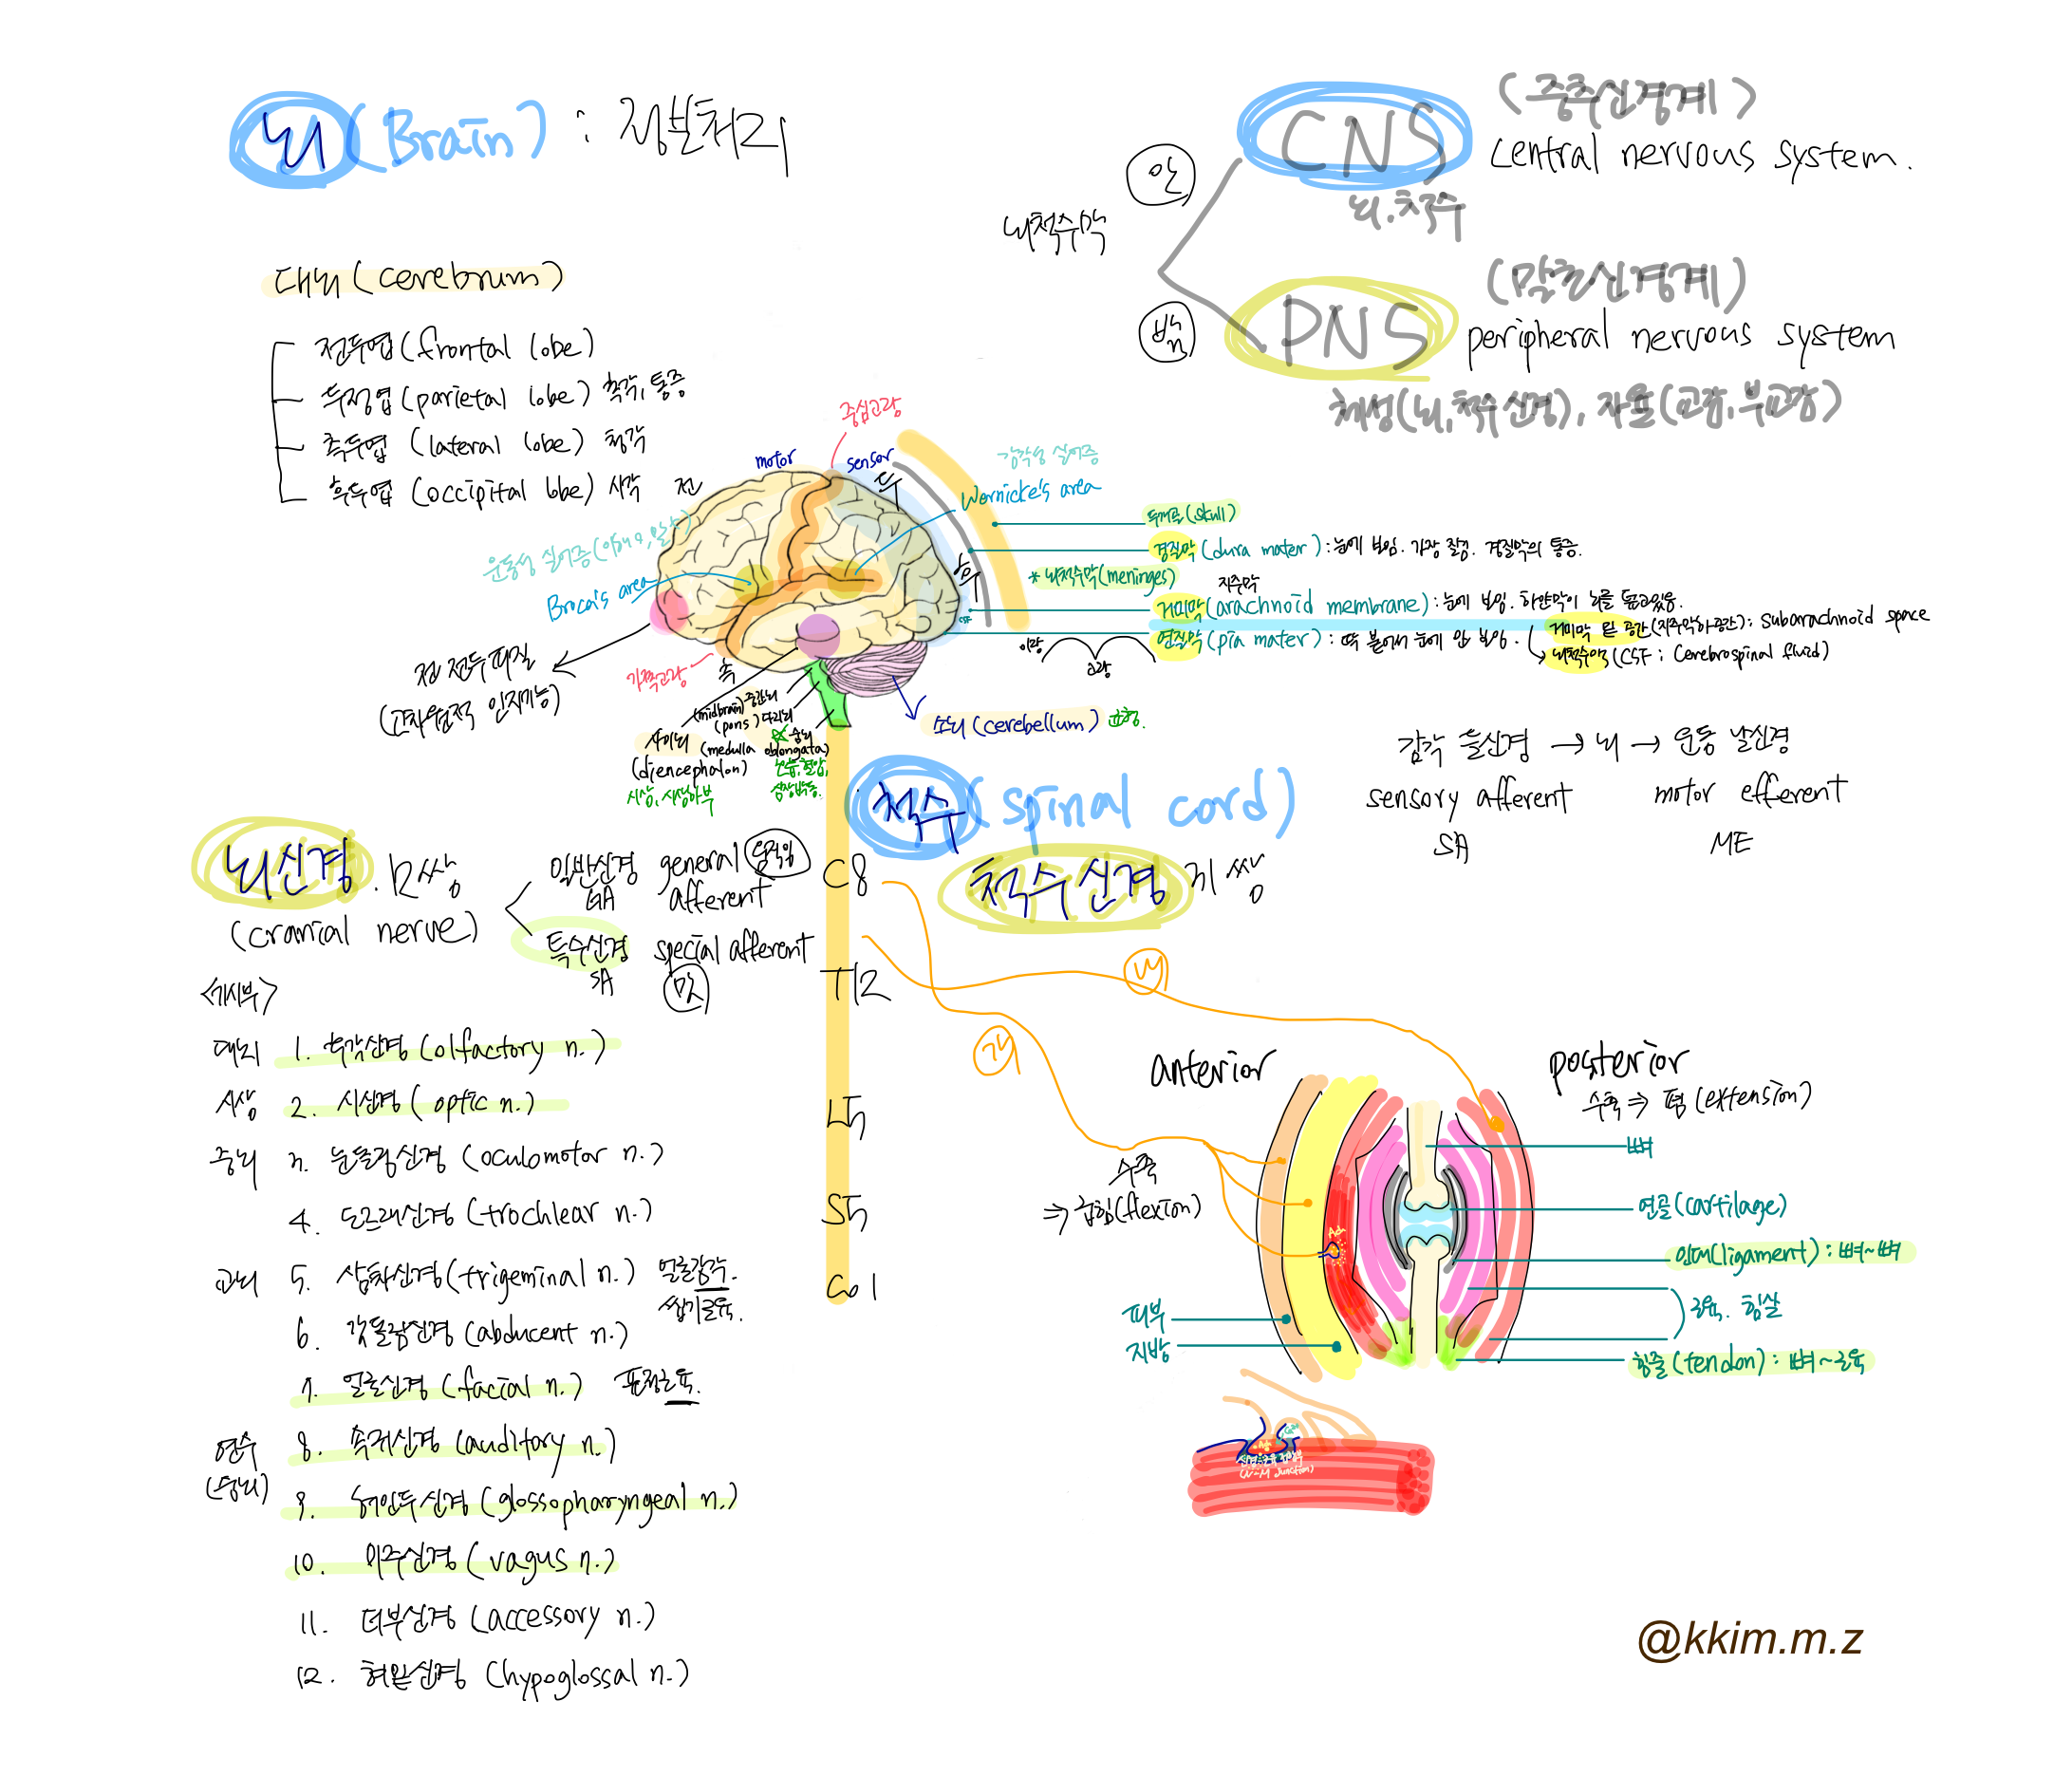 뇌 (Brain) : 정보처리
대뇌 (cerebrum)
전두엽 (frontal lobe)
두정엽 (parietal lobe) 촉각, 통증
측두엽 (lateral lobe) 청각
후두엽 (occipital lobe) 시각
뇌척수막
안
밖
CNS
(중추신경계)
central nervous system.
뇌.척수
PNS
(말초신경계)
peripheral nervous system
체성(뇌,척수신경), 자율(교감,부교감)
중심고랑
motor
sensor
전
두
후
측
감각성 실어증
Wernicke's area
Broca's area
가쪽고랑
전 전두피질
(고차원적 인지기능)
두개골(skull)
경질막 (dura mater) : 눈에 보임. 가장 질김. 경질막의 통증.
* 뇌척수막(meninges)
지주막
거미막(arachnoid membrane) : 눈에 보임. 하얀막이 뇌를 덮고있음.
거미막 밑 공간(지주막하공간) : subarachnoid space
연질막(pia mater) : 딱 붙어서 눈에 안 보임.
뇌척수액(CSF ; Cerebrospinal fluid)
이랑
고랑
(midbrain) 중간뇌
(pons) 다리뇌
숨뇌
(medulla oblongata)
호흡,혈압,
심장박동.
사이뇌
(diencephalon)
시상, 시상하부
소뇌 (cerebellum) 균형.
감각 들신경 → 뇌 → 운동 날신경
sensory afferent
motor efferent
SA
ME
척수 (spinal cord)
척수신경 31쌍
C8
T12
L5
S5
Co1
뇌신경. 12쌍
(cranial nerve)
일반신경 general
GA
afferent
움직임
특수신경 special afferent
SA
맛
<기시부>
대뇌 1. 후각신경 (olfactory n.)
시상 2. 시신경 (optic n.)
중뇌 3. 눈돌림신경 (oculomotor n.)
4. 도르래신경 (trochlear n.)
교뇌 5. 삼차신경(trigeminal n.) 얼굴감각.
씹기근육.
6. 갓돌림신경 (abducent n.)
7. 얼굴신경 (facial n.) 표정근육.
연수 8. 속귀신경 (auditory n.)
(숨뇌)
9. 혀인두신경 (glossopharyngeal n.)
10. 미주신경 (vagus n.)
11. 더부신경 (accessory n.)
12. 혀밑신경 (hypoglossal n.)
anterior
posterior
수축 ⇒ 폄 (extension)
수축
⇒ 굽힘(flexion)
뼈
연골(cartilage)
인대(ligament) : 뼈~뼈
근육. 힘살
힘줄(tendon) : 뼈~근육
피부
지방
(N-M Junction)
@kkim.m.z